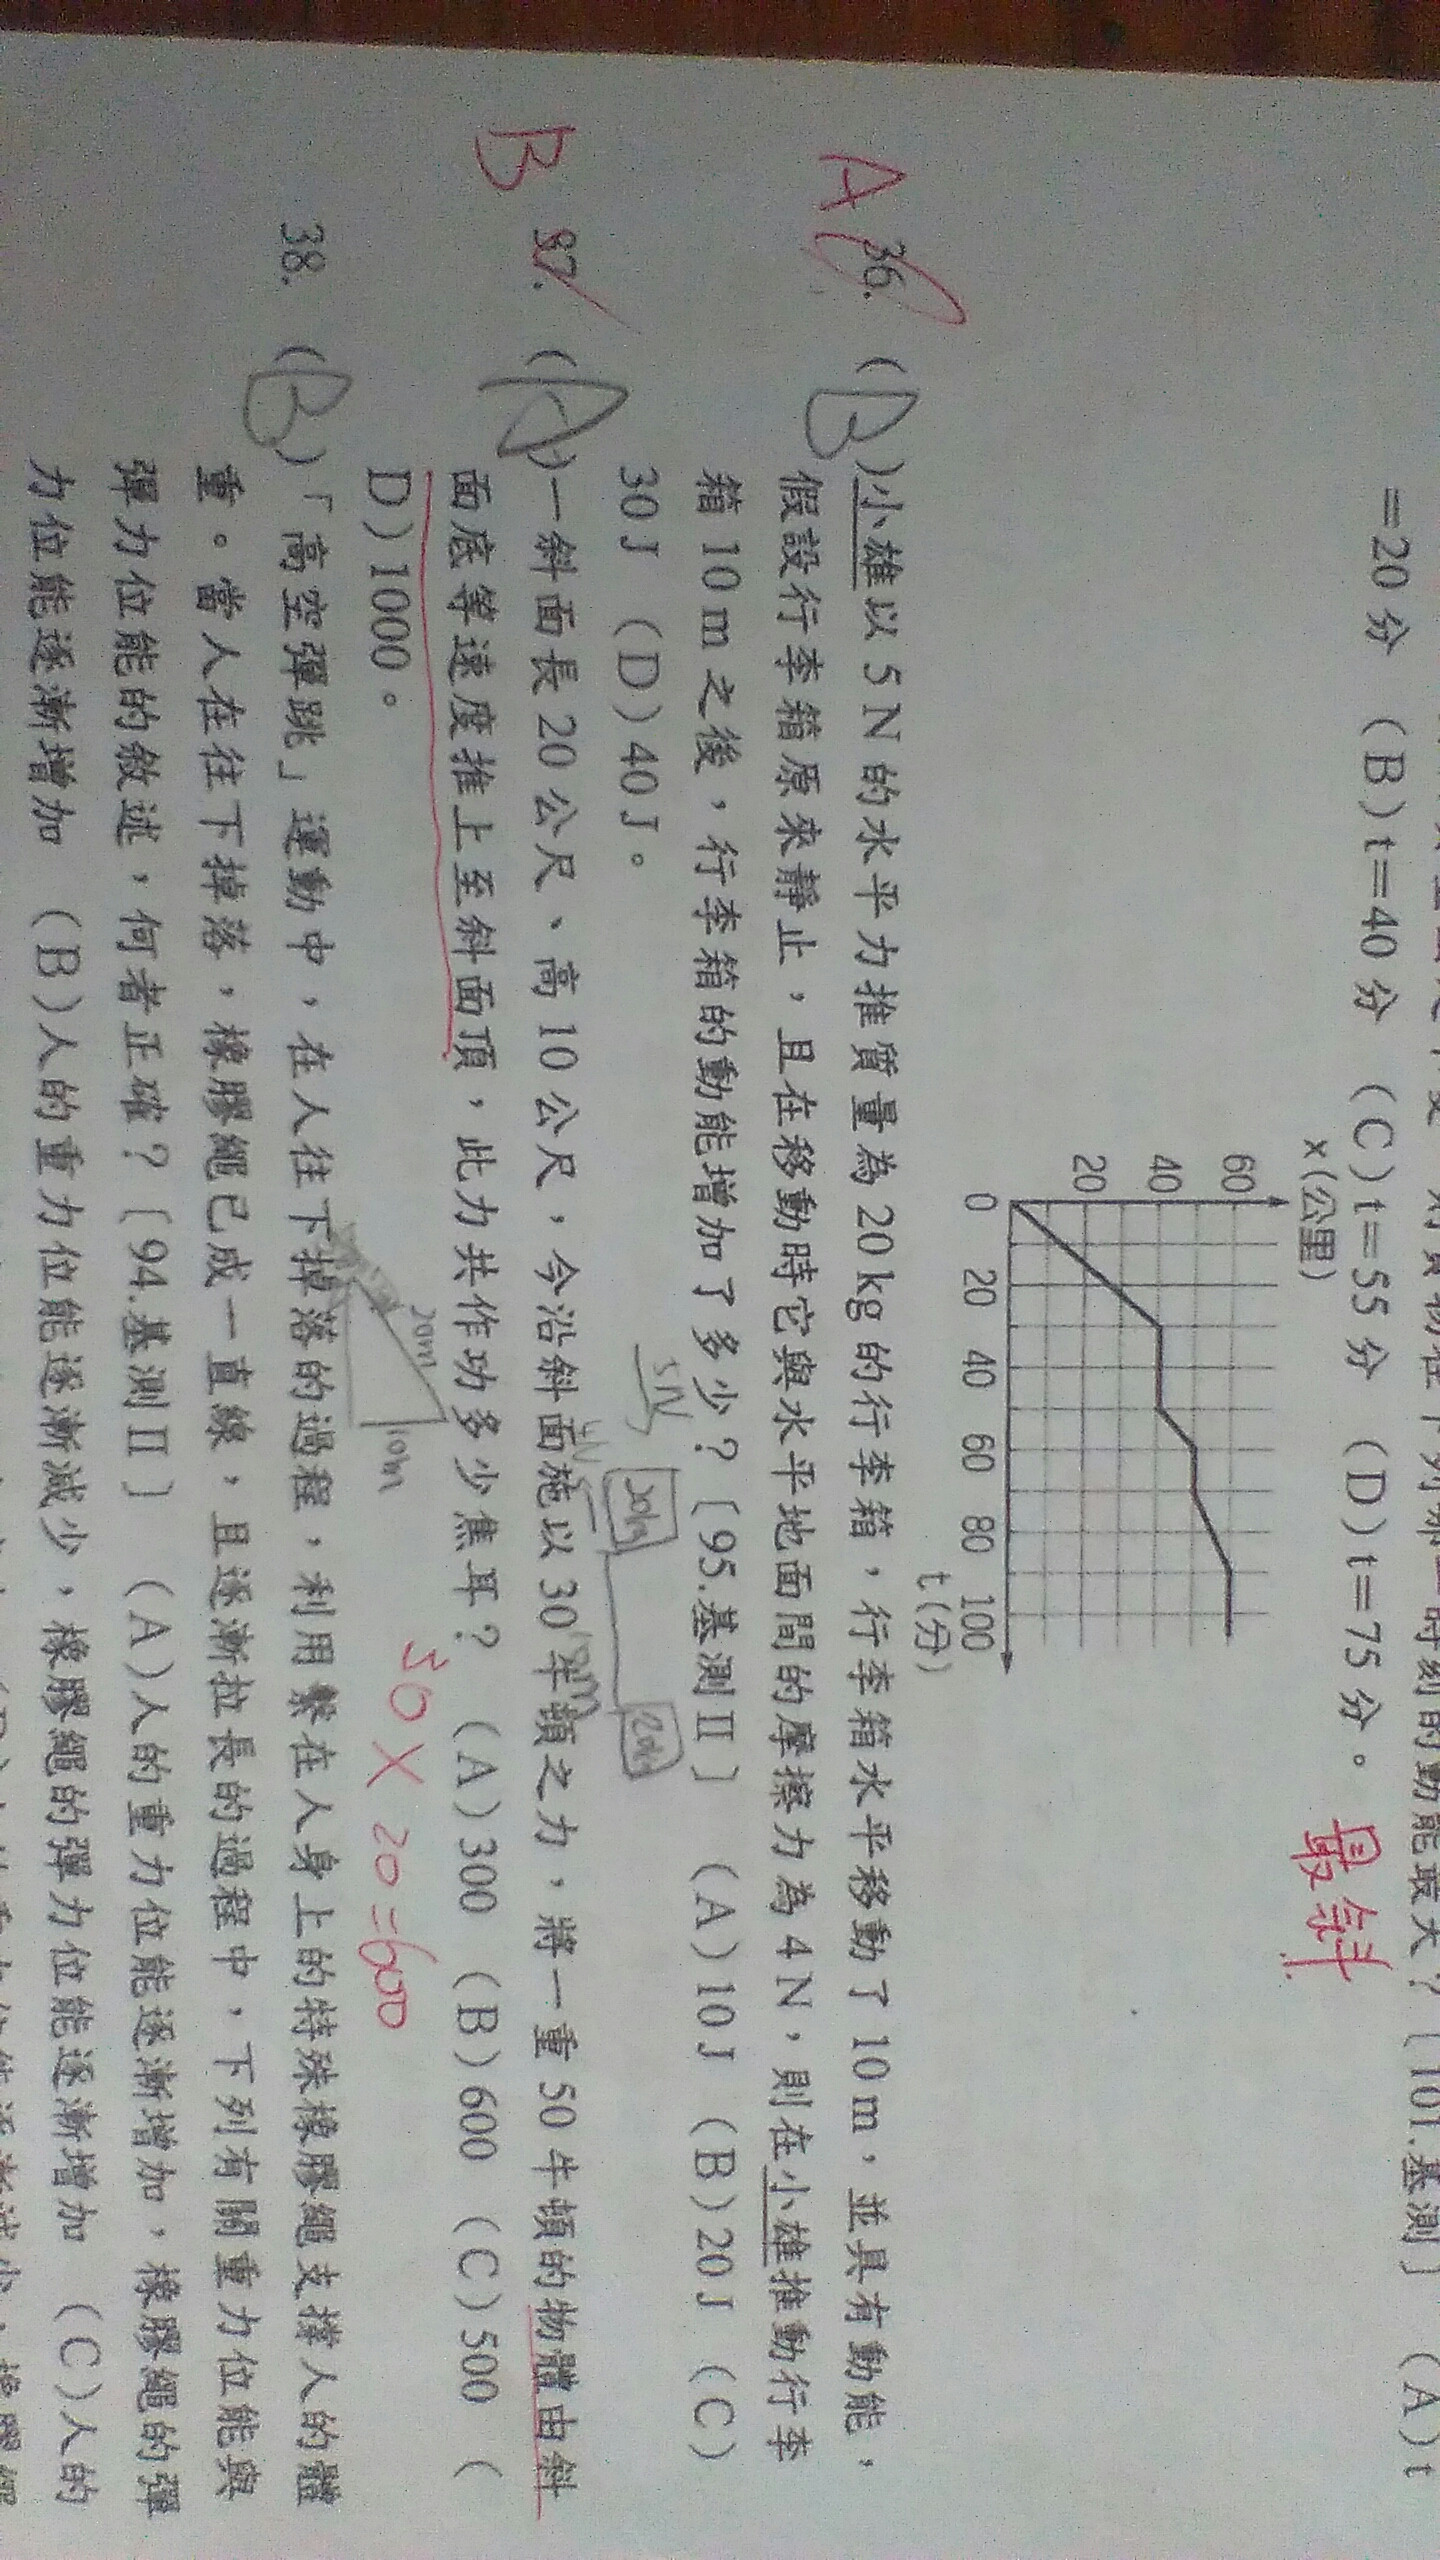 則貨物在下列哪一時刻的動能最大？〔101.基測〕 (A) t
=20 分 (B) t=40 分 (C) t=55 分 (D) t=75 分。
最斜
x(公里)
60
40
20
0 20 40 60 80 100
t(分)
A 36. (B) 小雄以 5 N 的水平力推質量為 20 kg 的行李箱，行李箱水平移動了 10 m，並具有動能，
假設行李箱原來靜止，且在移動時它與水平地面間的摩擦力為 4 N，則在小雄推動行李
箱 10 m 之後，行李箱的動能增加了多少？〔95.基測Ⅱ〕 (A) 10 J (B) 20 J (C)
30 J (D) 40 J。
5N
B 37. (A) 一斜面長 20 公尺、高 10 公尺，今沿斜面施以 30 牛頓之力，將一重 50 牛頓的物體由斜
面底等速度推上至斜面頂，此力共作功多少焦耳？ (A) 300 (B) 600 (C) 500 (
D) 1000。
20m
10m
30 X 20 = 600
38. (B) 「高空彈跳」運動中，在人往下掉落的過程，利用繫在人身上的特殊橡膠繩支撐人的體
重。當人在往下掉落，橡膠繩已成一直線，且逐漸拉長的過程中，下列有關重力位能與
彈力位能的敘述，何者正確？〔94.基測Ⅱ〕 (A) 人的重力位能逐漸增加，橡膠繩的彈
力位能逐漸增加 (B) 人的重力位能逐漸減少，橡膠繩的彈力位能逐漸增加 (C) 人的